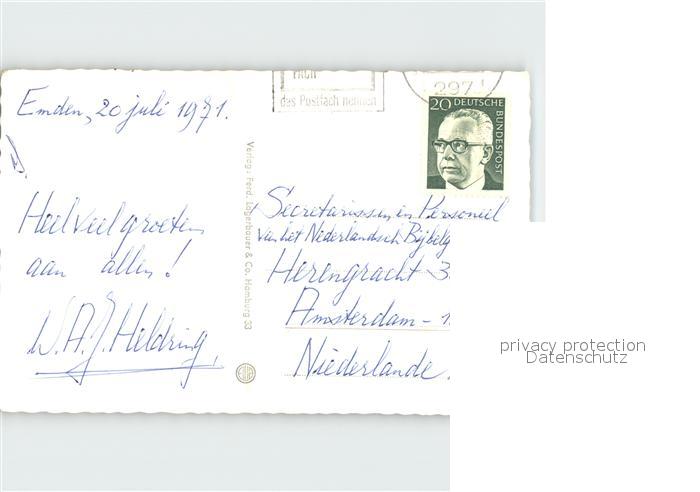 Emden, 20 juli 1971.
Heel veel groeten
aan allen!
W.A.J. Heldring,
Verlag: Ferd. Lagerbauer & Co. Hamburg 33
das Postfach nennen
297
20 DEUTSCHE
BUNDESPOST
Secretarissen en Personeel
van het Nederlandsch Bijbelg
Herengracht 3
Amsterdam -
Niederlande.
privacy protection
Datenschutz